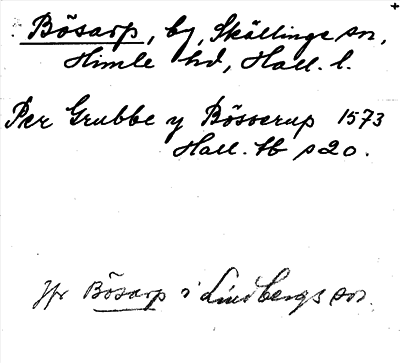 Bösarp, by, Skällinge sn,
Himle hd, Hall. l.
Per Grubbe y Bösoerup 1573
Hall. tb s 20.
Jfr Bösarp i Lindbergs sn.